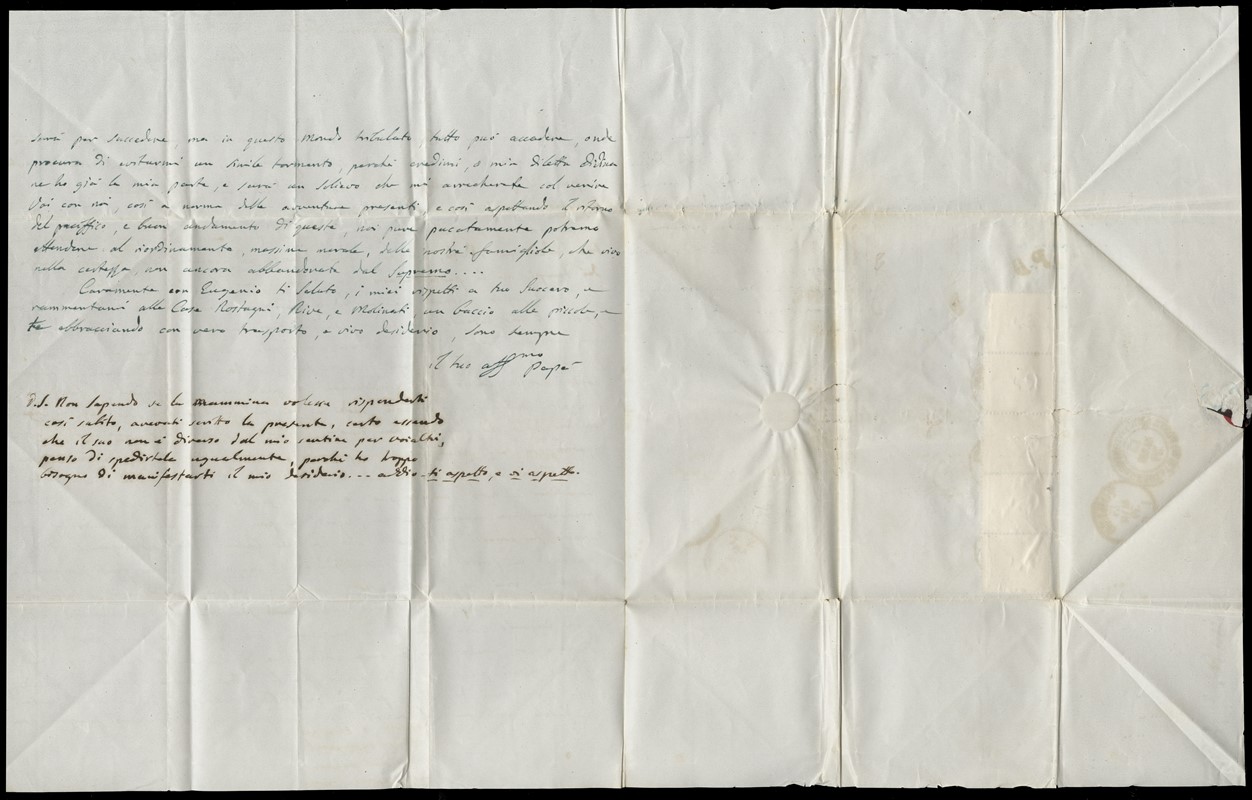 sarà per succedere, ma in questo mondo tribulato, tutto può accadere, onde
procura di evitarmi un simile tormento, perché credimi, o mia diletta Didina
ne ho già la mia parte, e sarà un solievo che mi arrecherete col venire
Voi con noi, così a norma delle avventure presenti, e così aspettando il ritorno
del paciffico, e buon andamento di queste, noi pure pacatamente potremo
attendere al riordinamento, massime morale, delle nostre famigliole, che vivo
nella certezza, non ancora abbandonate dal Supremo....
Caramente con Eugenio ti saluto, i miei rispetti a tuo Suocero, e
rammentami alle Case Rostagni, Riva, e Molinati, un baccio alle piccole, e
te abbracciando con vero trasporto, e vivo desiderio, sono sempre
il tuo affmo Papà
P.S. Non sapendo se la mammina volesse risponderti
così subito, averati scritto la presente, certo essendo
che il suo non è diverso dal mio sentire per voialtri,
penso di spedirtela egualmente, perché ho troppo
bisogno di manifestarti il mio desiderio... addio ti aspetto, e vi aspetto.